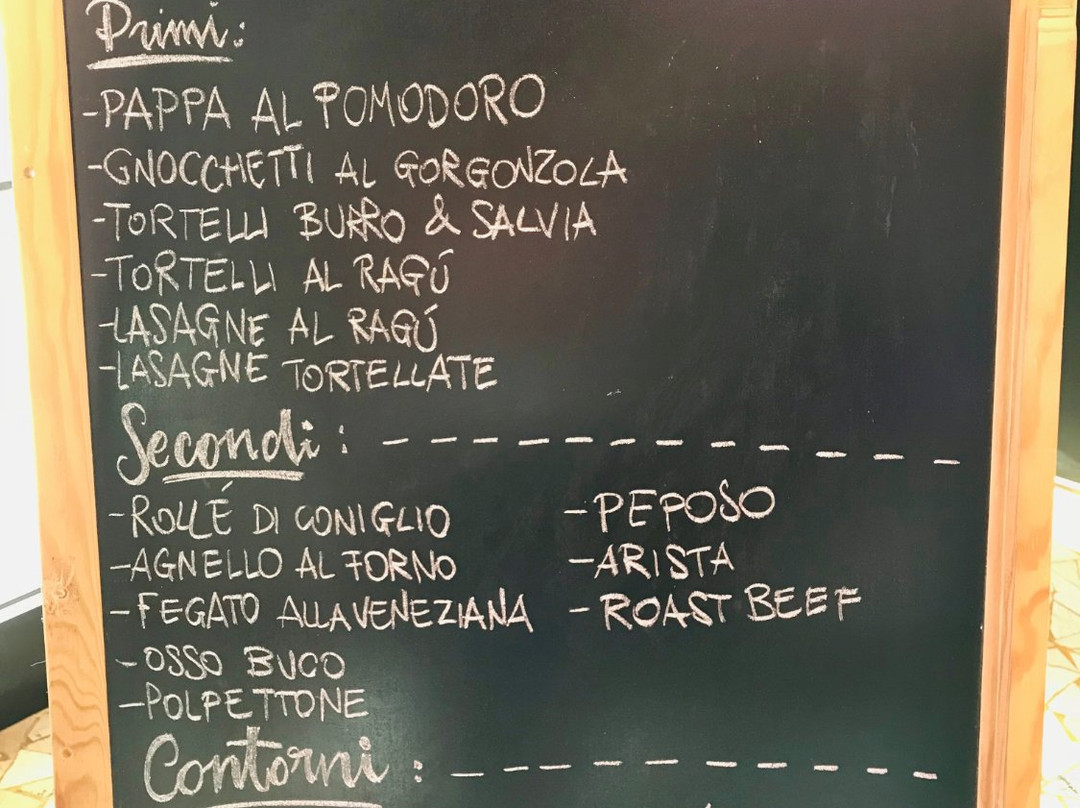 Primi:
-PAPPA AL POMODORO
-GNOCCHETTI AL GORGONZOLA
-TORTELLI BURRO & SALVIA
-TORTELLI AL RAGÚ
-LASAGNE AL RAGÚ
-LASAGNE TORTELLATE
Secondi: - - - - - - - - - - - - -
-ROLLÉ DI CONIGLIO
-AGNELLO AL FORNO
-FEGATO ALLA VENEZIANA
-OSSO BUCO
-POLPETTONE
-PEPOSO
-ARISTA
-ROAST BEEF
Contorni: - - - - - - - - - - -